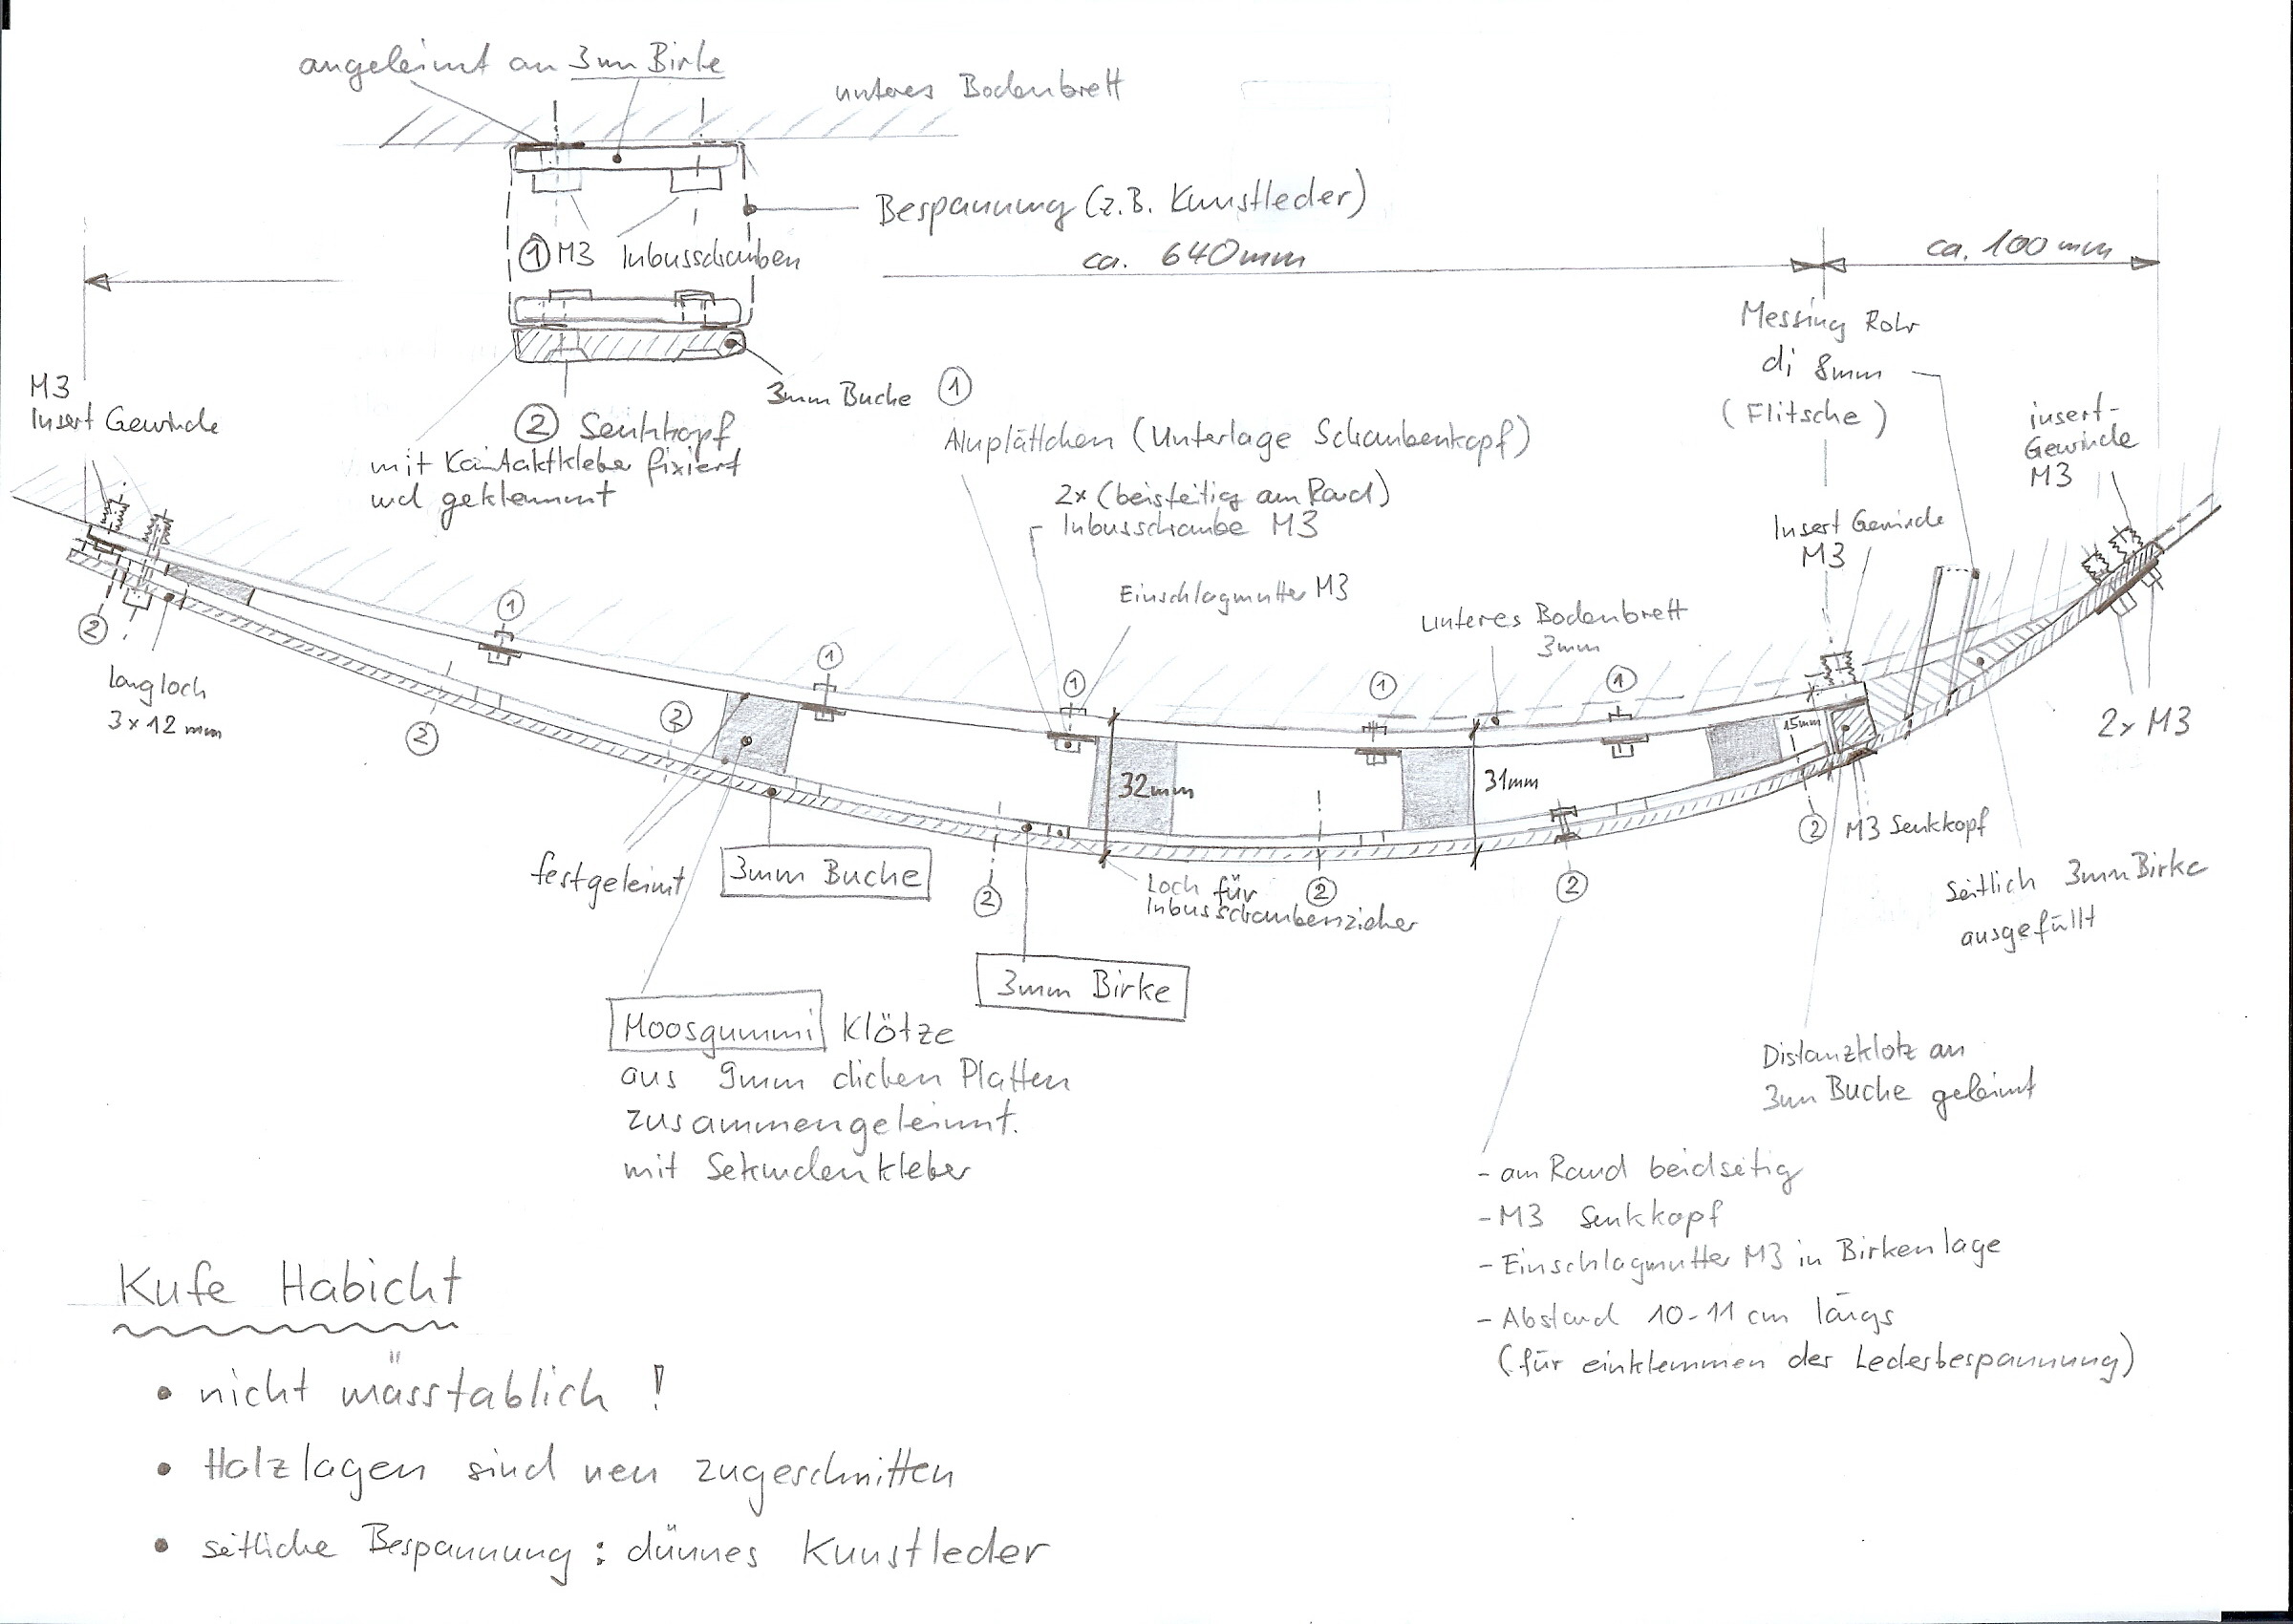 angeleimt an 3mm Birke
unteres Bodenbrett
Bespannung (z.B. Kunstleder)
① M3 Inbusschrauben
ca. 640mm
ca. 100mm
Messing Rohr
di 8mm
(Flitsche)
3mm Buche
② Senkkopf
mit Kontaktkleber fixiert
und geklemmt
M3
Insert Gewinde
①
Aluplättchen (Unterlage Schraubenkopf)
2x (beisfeitig am Rand)
Inbusschraube M3
Einschlagmutter M3
insert-
Gewinde
M3
Insert Gewinde
M3
unteres Bodenbrett
3mm
①
①
①
①
①
②
②
②
Langloch
3x12mm
15mm
32mm
31mm
2x M3
② M3 Senkkopf
festgeleimt
3mm Buche
②
Loch für
Inbusschraubenzieher
②
②
Seitlich 3mm Birke
ausgefüllt
3mm Birke
Moosgummi Klötze
aus 9mm dicken Platten
zusammengeleimt.
mit Sekundenkleber
Distanzklotz an
3mm Buche geleimt
- am Rand beidseitig
- M3 Senkkopf
- Einschlagmutter M3 in Birkenlage
- Abstand 10-11 cm längs
(für einklemmen der Lederbespannung)
Kufe Habicht
• nicht mässtablich !
• Holzlagen sind neu zugeschnitten
• seitliche Bespannung : dünnes Kunstleder